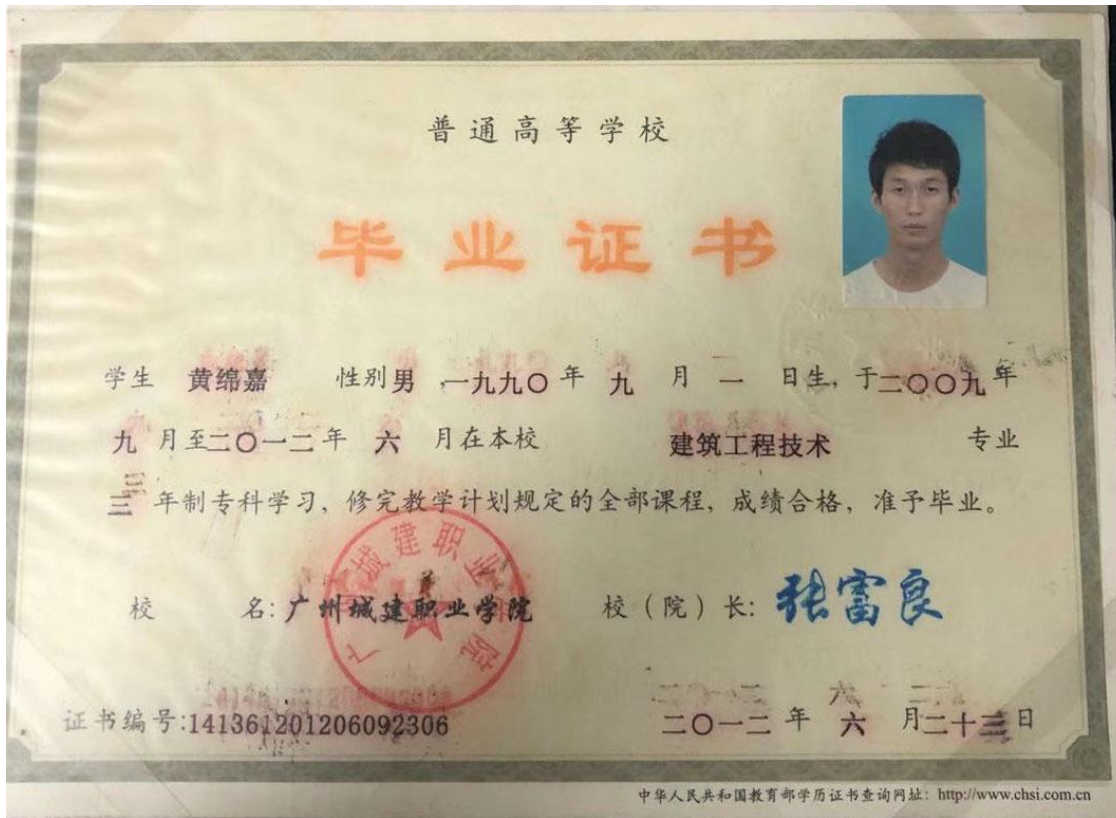 普通高等学校
毕业证书
学生 黄绵嘉 性别男,一九九〇年九月一日生,于二〇〇九年
九月至二〇一二年六月在本校 建筑工程技术 专业
三年制专科学习,修完教学计划规定的全部课程,成绩合格,准予毕业。
校 名:广州城建职业学院 校(院)长:张富良
广州城建职业学院
证书编号:141361201206092306 二〇一二年六月二十三日
中华人民共和国教育部学历证书查询网址:http://www.chsi.com.cn